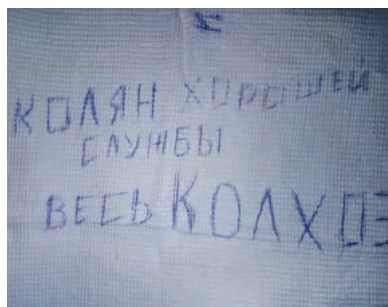 КОЛЯН ХОРОШЕЙ
СЛУЖБЫ
ВЕСЬ КОЛХОЗ